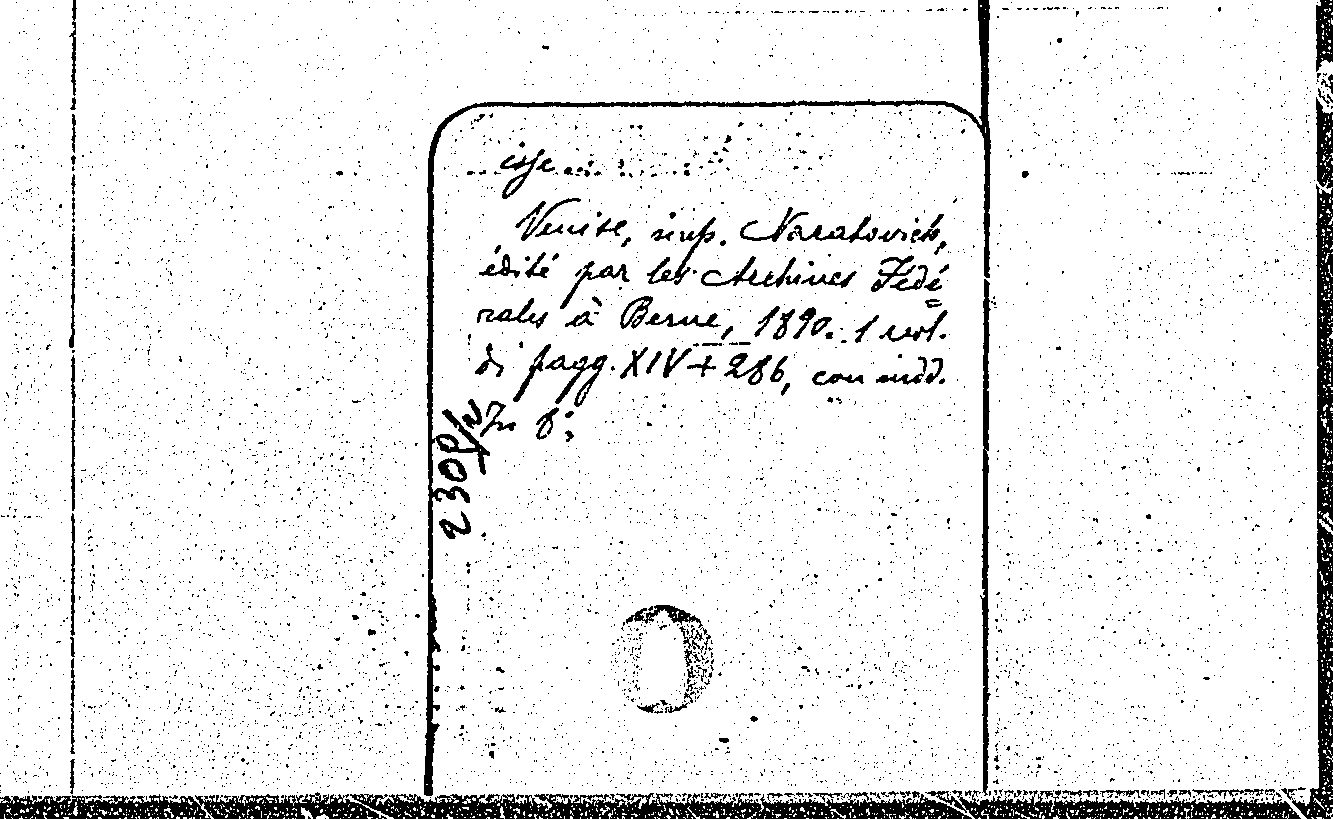 isse
Venise, imp. Naratovich,
édité par les Archives Fédé
rales à Berne, 1890. 1 vol.
di pagg. XIV + 286, con indd.
In 8;
230